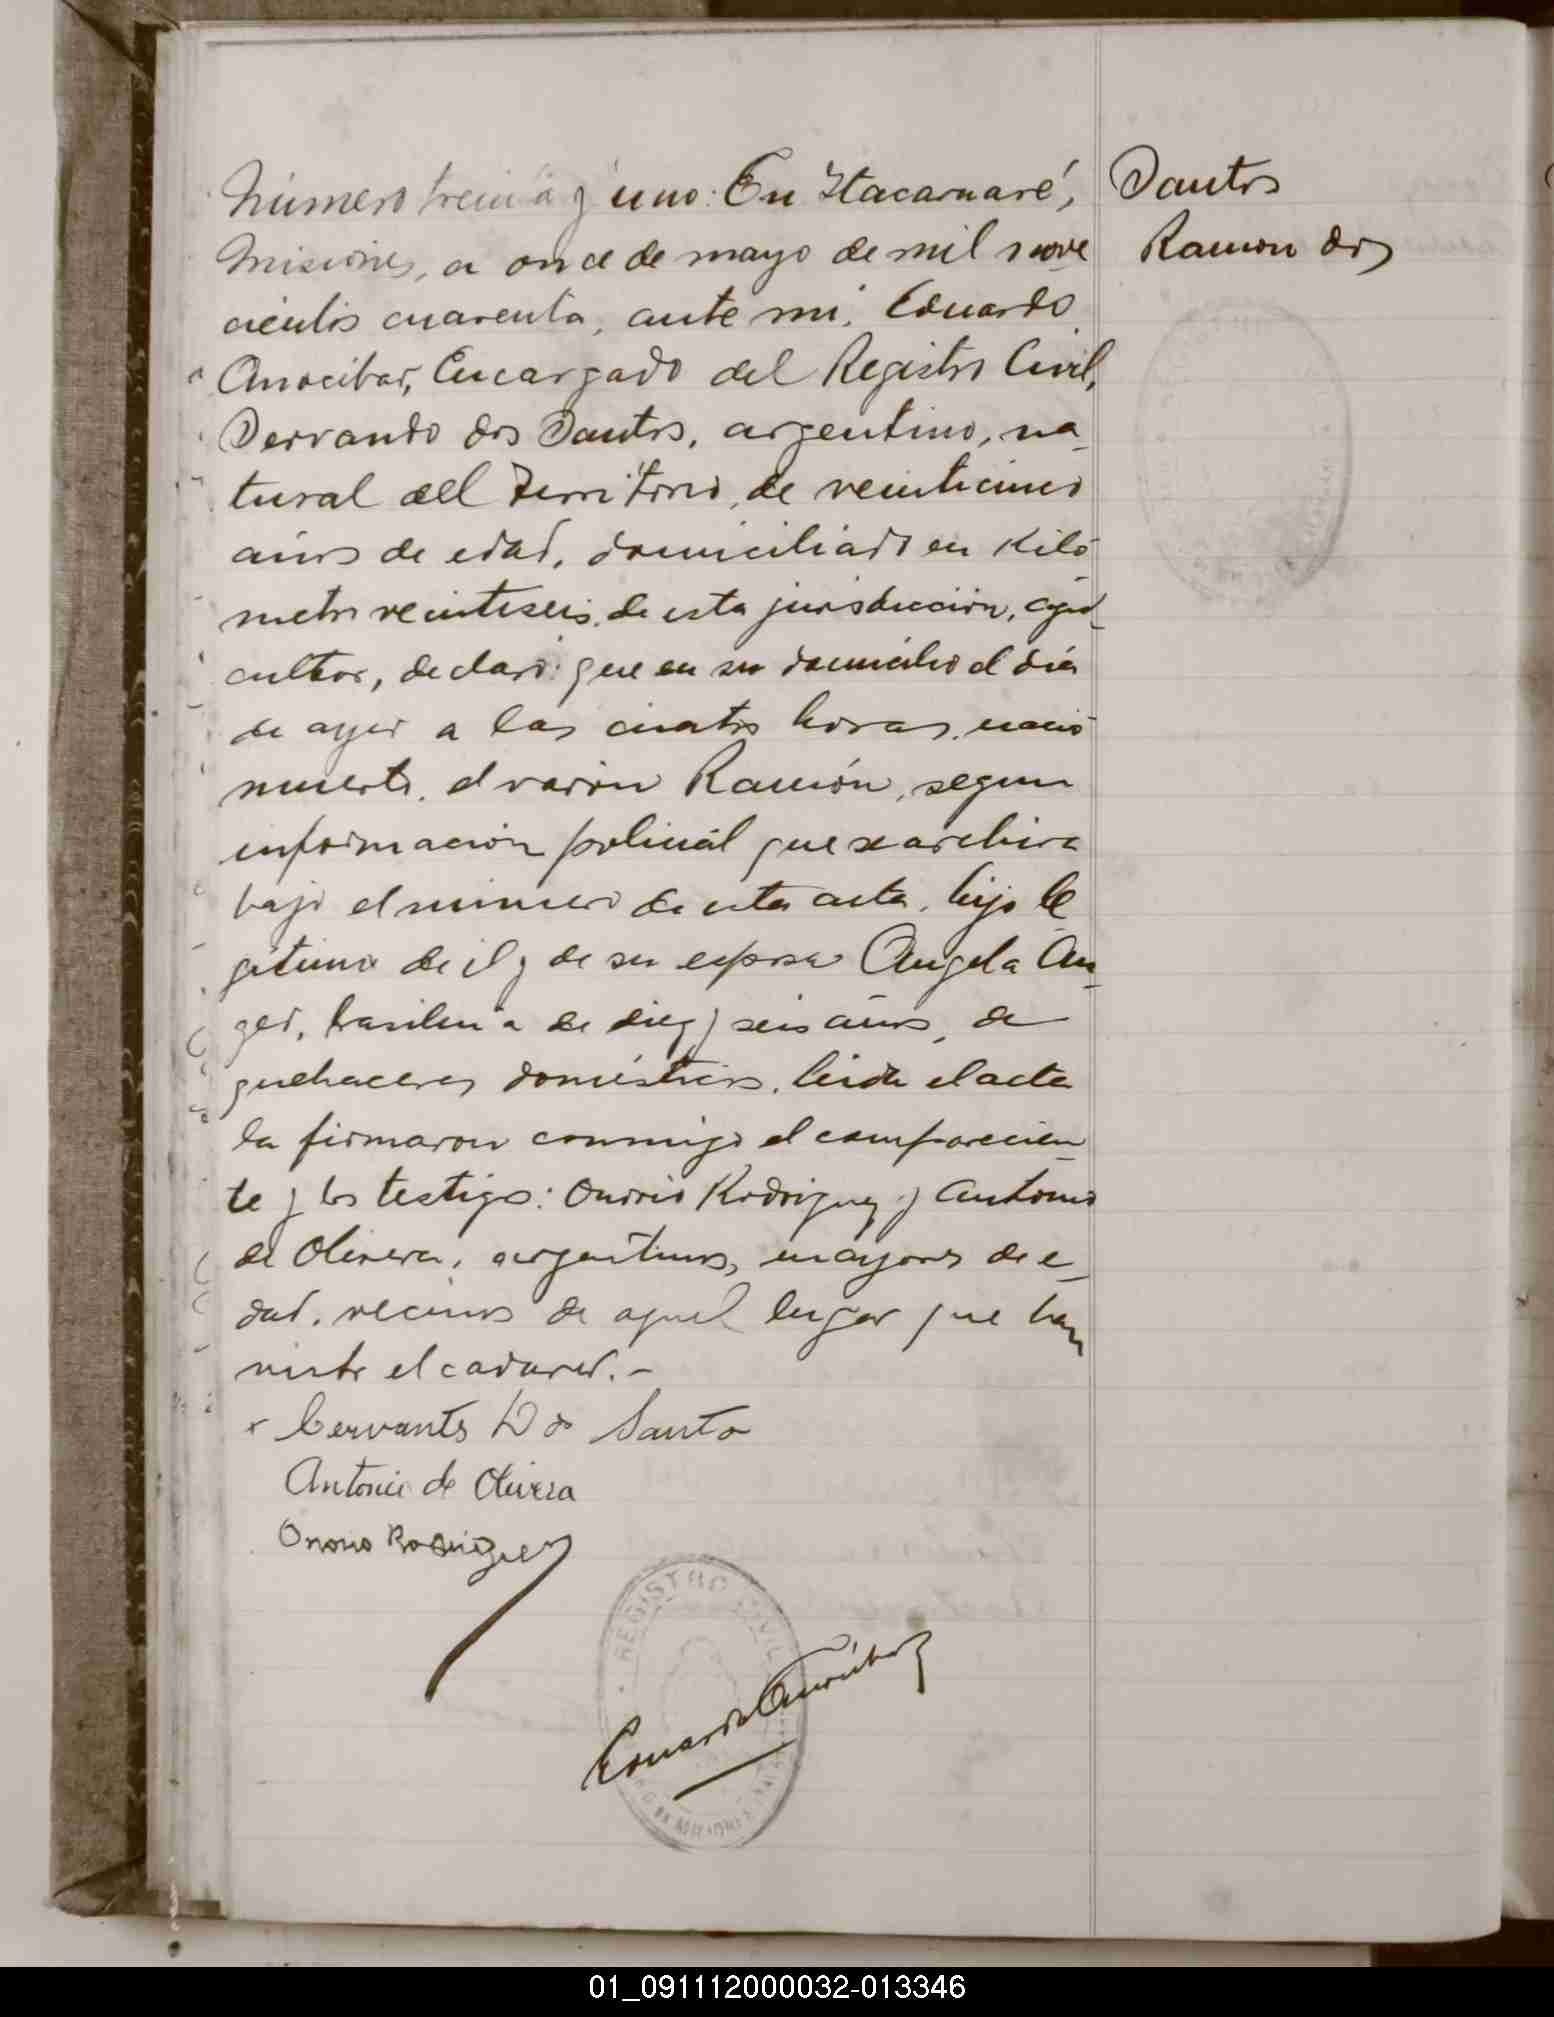 Número treinta y uno: En Itacaruaré,
Misiones, a once de mayo de mil nove
cientos cuarenta, ante mi, Eduardo
Anocibar, Encargado del Registro Civil,
Servando dos Santos, argentino, na-
tural del Territorio, de veinticinco
años de edad, domiciliado en Kiló-
metro veintiseis, de esta jurisdicción, agri-
cultor, declaró: que en su domicilio el día
de ayer a las cuatro horas, nació
muerto, el varón Ramón, segun
información policial que se archiva
bajo el número de esta acta, hijo le-
gítimo de él y de su esposa Angela An-
ger, brasileña de diez y seis años, de
quehaceres domésticos. Leida el acta
la firmaron conmigo el comparecien-
te y los testigos: Onorio Rodriguez y Antonio
de Olivera, argentinos, mayores de e-
dad, vecinos de aquel lugar que han
visto el cadaver.-
x Cervantes D do Santo
Antonio de Olivera
Onorio Rodriguez
Eduardo Anocibar
Santos
Ramon dos
REGISTRO CIVIL
01_091112000032-013346